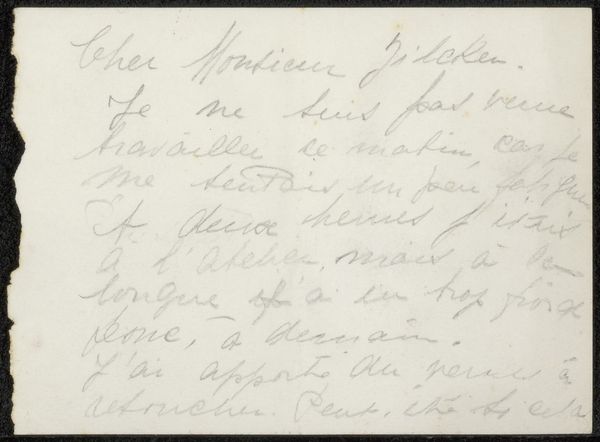 Cher Monsieur Zilcken.
Je ne suis pas venue
travailler ce matin, car je
me sentais un peu fatigu
A deux heures j'étais
à l'atelier, mais à la
longue j'ai eu trop froid
donc, à demain.
J'ai apporté du vernis à
retoucher. Peut-être si cela